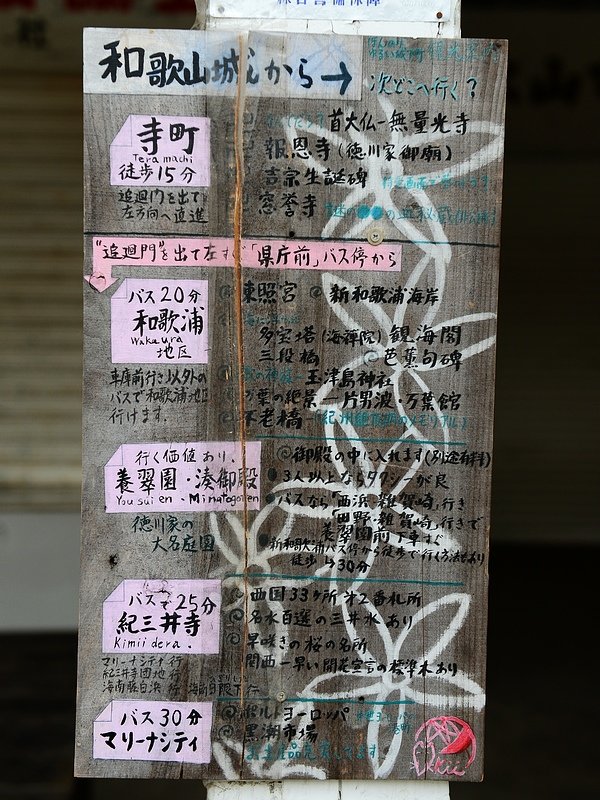 和歌山城んから→
次どこへ行く?
寺町
Teramachi
徒歩15分
追廻門を出て
左方向へ直進
首大仏ー無量光寺
報恩寺(徳川家御廟)
吉宗生誕碑
窓誉寺
"追廻門"を出て左すぐ「県庁前」バス停から
バス20分
和歌浦
Wakaura
地区
車庫前行き以外の
バスで和歌浦地区
行けます.
東照宮 新和歌浦海岸
多宝塔(海禅院) 観海閣
三段橋 芭蕉句碑
玉津島神社
万葉の絶景 片男波・万葉館
不老橋
行く価値あり.
養翠園・湊御殿
Yousuien・Minatogoten
徳川家の
大名庭園
御殿の中に入れます(別途有料)
3人以上ならタクシーが良
バスなら「西浜・雑賀崎」行き
「田野・雑賀崎」行きで
養翠園前下車すぐ
新和歌浦バス停から徒歩で行く方法もあり
徒歩30分
バスで25分
紀三井寺
Kimiidera.
マリーナシティ行
紀三井寺団地行
海南藤白浜行
西国33ヶ所 第2番札所
名水百選の三井水あり
早咲きの桜の名所
関西一早い開花宣言の標準木あり
バス30分
マリーナシティ
ポルトヨーロッパ
黒潮市場